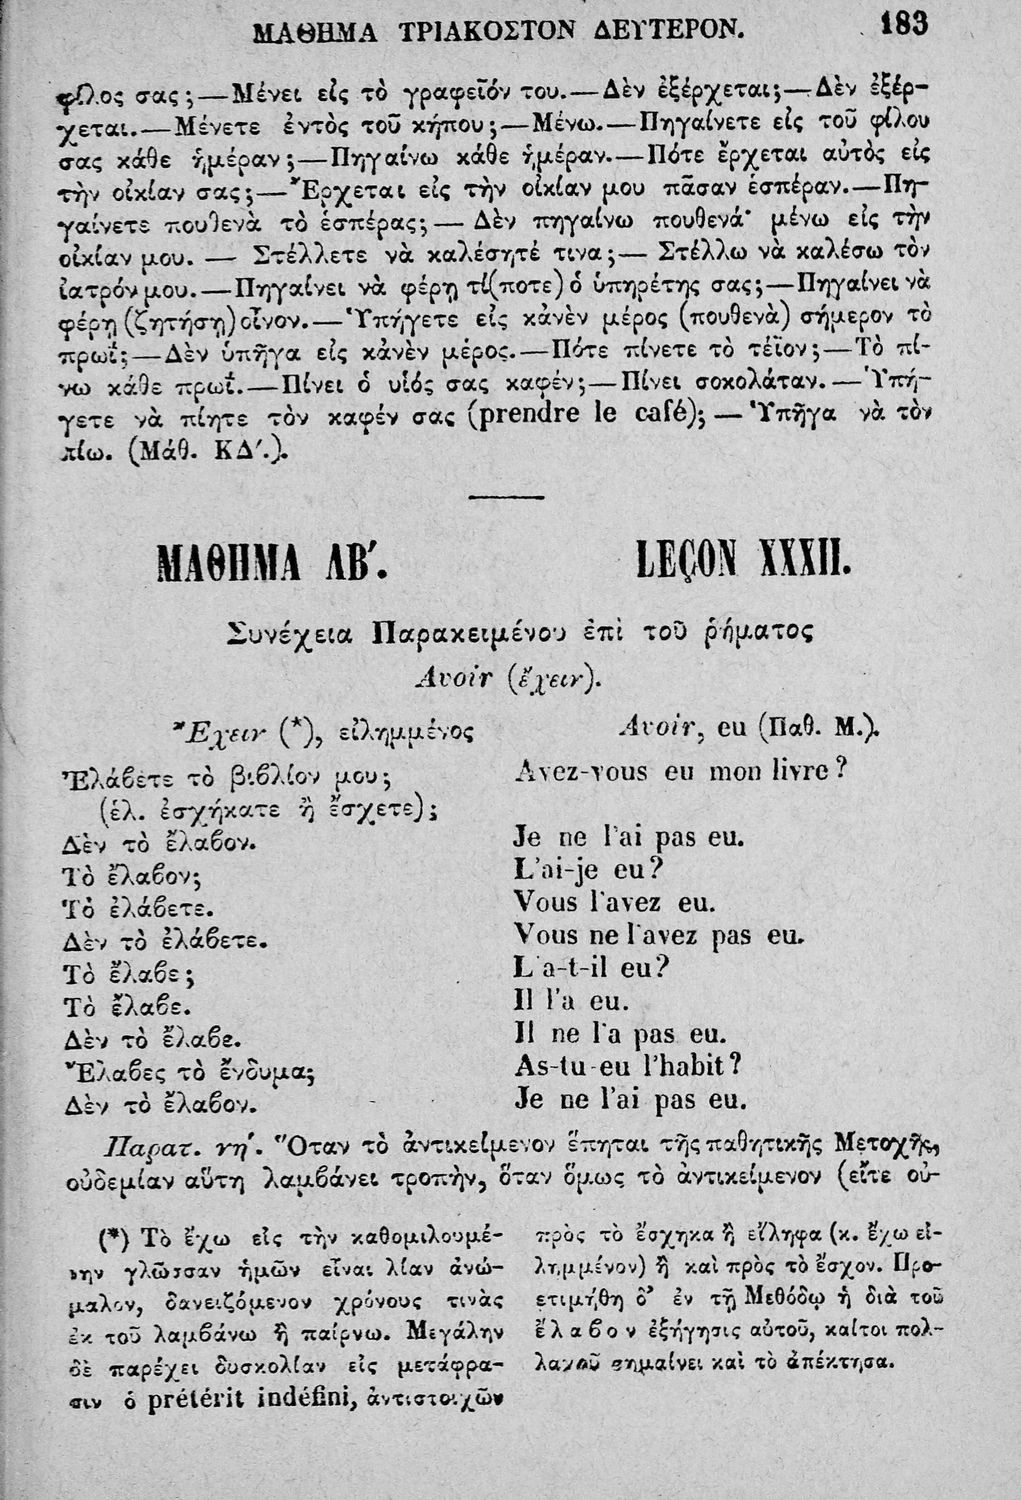 ΜΑΘΗΜΑ ΤΡΙΑΚΟΣΤΟΝ ΔΕΥΤΕΡΟΝ. 183
φίλος σας;—Μένει εἰς τὸ γραφεῖόν του.—Δὲν ἐξέρχεται;—Δὲν ἐξέρ-
χεται.—Μένετε ἐντὸς τοῦ κήπου;—Μένω.—Πηγαίνετε εἰς τοῦ φίλου
σας κάθε ἡμέραν;—Πηγαίνω κάθε ἡμέραν.—Πότε ἔρχεται αὐτὸς εἰς
τὴν οἰκίαν σας;—Ἔρχεται εἰς τὴν οἰκίαν μου πᾶσαν ἑσπέραν.—Πη-
γαίνετε πουθενὰ τὸ ἑσπέρας;— Δὲν πηγαίνω πουθενά· μένω εἰς τὴν
οἰκίαν μου. — Στέλλετε νὰ καλέσητέ τινα;— Στέλλω νὰ καλέσω τὸν
ἰατρόν μου.—Πηγαίνει νὰ φέρῃ τί(ποτε) ὁ ὑπηρέτης σας;—Πηγαίνει νὰ
φέρῃ (ζητήσῃ) οἶνον.—Ὑπήγετε εἰς κἀνὲν μέρος (πουθενὰ) σήμερον τὸ
πρωΐ;—Δὲν ὑπῆγα εἰς κἀνὲν μέρος.—Πότε πίνετε τὸ τέϊον;—Τὸ πί-
νω κάθε πρωΐ.—Πίνει ὁ υἱός σας καφέν;—Πίνει σοκολάταν.—Ὑπή-
γετε νὰ πίητε τὸν καφέν σας (prendre le café);—Ὑπῆγα νὰ τὸν
πίω. (Μάθ. ΚΔʹ.).
ΜΑΘΗΜΑ ΛΒʹ. LEÇON XXXII.
Συνέχεια Παρακειμένου ἐπὶ τοῦ ῥήματος
Avoir (ἔχειν).
Ἔχειν (*), εἰλημμένος Avoir, eu (Παθ. Μ.).
Ἐλάβετε τὸ βιβλίον μου; Avez-vous eu mon livre?
(ἑλ. ἐσχήκατε ἢ ἔσχετε);
Δὲν τὸ ἔλαβον. Je ne l'ai pas eu.
Τὸ ἔλαβον; L'ai-je eu?
Τὸ ἐλάβετε. Vous l'avez eu.
Δὲν τὸ ἐλάβετε. Vous ne l'avez pas eu.
Τὸ ἔλαβε; L'a-t-il eu?
Τὸ ἔλαβε. Il l'a eu.
Δὲν τὸ ἔλαβε. Il ne l'a pas eu.
Ἔλαβες τὸ ἔνδυμα; As-tu eu l'habit?
Δὲν τὸ ἔλαβον. Je ne l'ai pas eu.
Παρατ. νηʹ. Ὅταν τὸ ἀντικείμενον ἕπηται τῆς παθητικῆς Μετοχῆς,
οὐδεμίαν αὕτη λαμβάνει τροπὴν, ὅταν ὅμως τὸ ἀντικείμενον (εἴτε οὐ-
(*) Τὸ ἔχω εἰς τὴν καθομιλουμέ-
νην γλῶσσαν ἡμῶν εἶναι λίαν ἀνώ-
μαλον, δανειζόμενον χρόνους τινὰς
ἐκ τοῦ λαμβάνω ἢ παίρνω. Μεγάλην
δὲ παρέχει δυσκολίαν εἰς μετάφρα-
σιν ὁ prétérit indéfini, ἀντιστοιχῶν
πρὸς τὸ ἔσχηκα ἢ εἴληφα (κ. ἔχω εἰ-
λημμένον) ἢ καὶ πρὸς τὸ ἔσχον. Προ-
ετιμήθη δ' ἐν τῇ Μεθόδῳ ἡ διὰ τοῦ
ἔλαβον ἐξήγησις αὐτοῦ, καίτοι πολ-
λαχοῦ σημαίνει καὶ τὸ ἀπέκτησα.